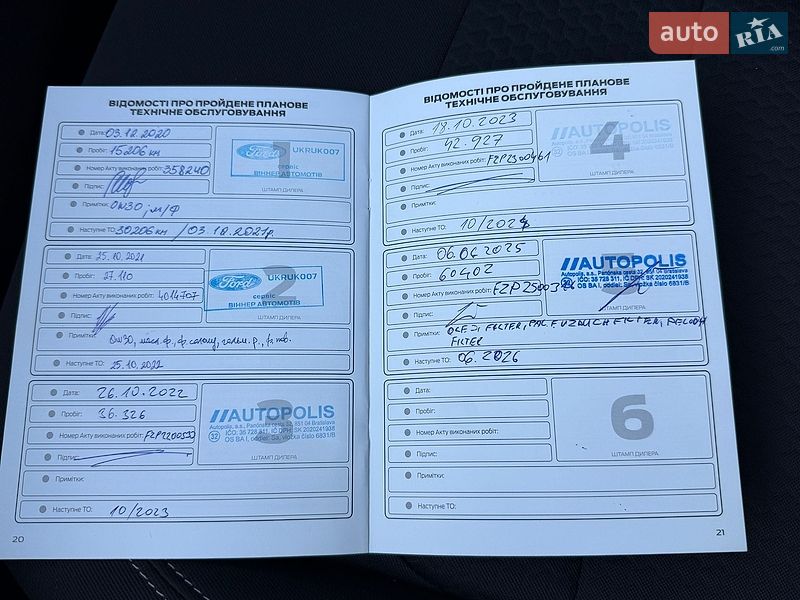 auto RIA.com
ВІДОМОСТІ ПРО ПРОЙДЕНЕ ПЛАНОВЕ
ТЕХНІЧНЕ ОБСЛУГОВУВАННЯ
Дата: 03.12.2020
Пробіг: 15206 км
Номер Акту виконаних робіт: 358240
Підпис:
Примітки: 0W30; м/ф
Наступне ТО: 30206 км / 03.12.2021р.
1
Ford UKRUK007
сервіс
ВІННЕР АВТОМОТІВ
ШТАМП ДИЛЕРА
Дата: 25.10.2021
Пробіг: 27.110
Номер Акту виконаних робіт: 4014707
Підпис:
Примітки: 0W30, масл. ф, ф салону, гальм. р.,
Наступне ТО: 25.10.2022
2
Ford UKRUK007
сервіс
ВІННЕР АВТОМОТІВ
ШТАМП ДИЛЕРА
Дата: 26.10.2022
Пробіг: 36.326
Номер Акту виконаних робіт:
Підпис:
Примітки:
Наступне ТО: 10/2023
3
//AUTOPOLIS
Autopolis, a.s., Panónska cesta 32, 851 04 Bratislava
32 IČO: 35 728 311, IČ DPH: SK 2020241938
OS BA I, oddiel: Sa, vložka číslo 6831/B
ШТАМП ДИЛЕРА
20
ВІДОМОСТІ ПРО ПРОЙДЕНЕ ПЛАНОВЕ
ТЕХНІЧНЕ ОБСЛУГОВУВАННЯ
Дата: 18.10.2023
Пробіг: 42.927
Номер Акту виконаних робіт: FZP2300461
Підпис:
Примітки:
Наступне ТО: 10/2024
4
//AUTOPOLIS
ШТАМП ДИЛЕРА
Дата: 06.06.2025
Пробіг: 60402
Номер Акту виконаних робіт:
Підпис:
Примітки: OLEJ, FILTER, PALIV. VZDUCH FILTER, PELOVÝ
FILTER
Наступне ТО: 06.2026
//AUTOPOLIS
Autopolis, a.s., Panónska cesta 32, 851 04 Bratislava
IČO: 35 728 311, IČ DPH: SK 2020241938
OS BA I, oddiel: Sa, vložka číslo 6831/B
ШТАМП ДИЛЕРА
Дата:
Пробіг:
Номер Акту виконаних робіт:
Підпис:
Примітки:
Наступне ТО:
6
ШТАМП ДИЛЕРА
21